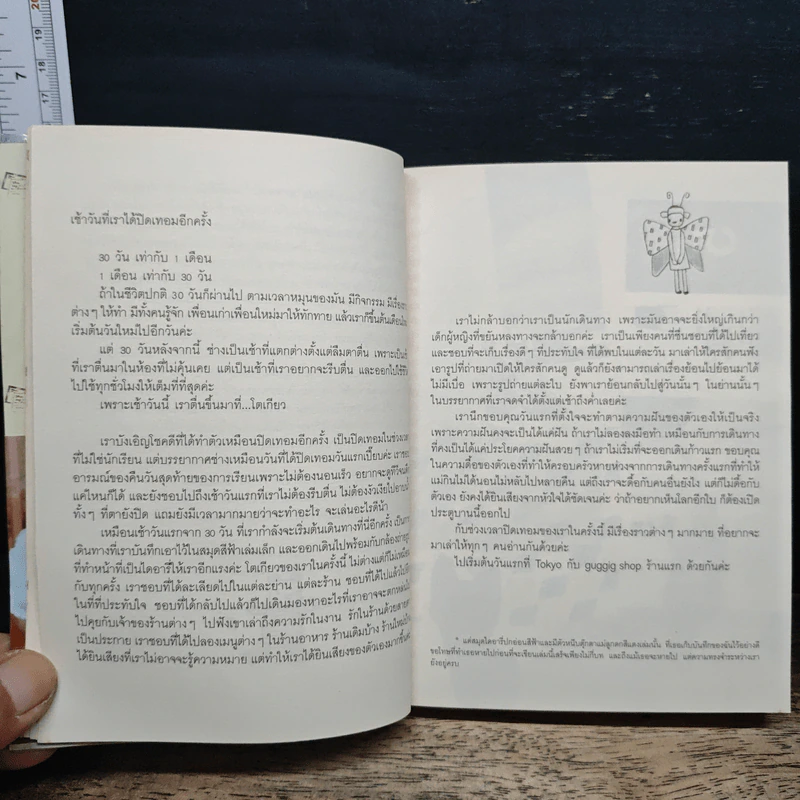 เช้าวันที่เราได้ปิดเทอมอีกครั้ง
30 วัน เท่ากับ 1 เดือน
1 เดือน เท่ากับ 30 วัน
ถ้าในชีวิตปกติ 30 วันก็ผ่านไป ตามเวลาหมุนของมัน มีกิจกรรม
ต่างๆ ให้ทำ มีทั้งคนรู้จัก เพื่อนเก่าเพื่อนใหม่มาให้ทักทาย แล้วเราก็ขึ้นต้นเดือนใหม่
เริ่มต้นวันใหม่ไปอีกวันค่ะ
แต่ 30 วันหลังจากนี้ ช่างเป็นเช้าที่แตกต่างตั้งแต่ลืมตาตื่น
ที่เราตื่นมาในห้องที่ไม่คุ้นเคย แต่เป็นเช้าที่เราอยากจะรีบตื่น และออกไปใช้ชีวิต
ไปใช้ทุกชั่วโมงให้เต็มที่ที่สุดค่ะ
เพราะเช้าวันนี้ เราตื่นขึ้นมาที่...โตเกียว
เราบังเอิญโชคดีที่ได้ทำตัวเหมือนปิดเทอมอีกครั้ง เป็นปิดเทอมในช่วงเวลา
ที่ไม่ใช่นักเรียน แต่บรรยากาศช่างเหมือนวันที่ได้ปิดเทอมวันแรกเปี๊ยบค่ะ เราชอบ
อารมณ์ของคืนวันสุดท้ายของการเรียนเพราะไม่ต้องนอนเร็ว อยากจะดูทีวีจนดึก
แค่ไหนก็ได้ และยังชอบไปถึงเช้าวันแรกที่เราไม่ต้องรีบตื่น ไม่ต้องงัวเงียไปอาบน้ำ
ทั้งๆ ที่ตายังปิด แถมยังมีเวลามากมายว่าจะทำอะไร จะเล่นอะไรดีน้า
เหมือนเช้าวันแรกจาก 30 วัน ที่เรากำลังจะเริ่มต้นเดินทางที่นี่อีกครั้ง เป็นการ
เดินทางที่เราบันทึกเอาไว้ในสมุดสีฟ้าเล่มเล็ก และออกเดินไปพร้อมกับกล้องถ่ายรูป
ที่ทำหน้าที่เป็นไดอารี่ให้เราอีกแรงค่ะ โตเกียวของเราในครั้งนี้ ไม่ต่างแต่ก็ไม่เหมือน
กับทุกครั้ง เราชอบที่ได้ละเลียดไปในแต่ละย่าน แต่ละร้าน ชอบที่ได้ไปแล้วไปอีก
ในที่ที่ประทับใจ ชอบที่ได้กลับไปแล้วก็ไปเดินมองหาอะไรที่เราอาจจะตกหล่น
ไปคุยกับเจ้าของร้านต่างๆ ไปฟังเขาเล่าถึงความรักในงาน รักในร้านด้วยสายตา
เป็นประกาย เราชอบที่ได้ไปลองเมนูต่างๆ ในร้านอาหาร ร้านเดิมบ้าง ร้านใหม่บ้าง
ได้ยินเสียงที่เราไม่อาจจะรู้ความหมาย แต่ทำให้เราได้ยินเสียงของตัวเองมากขึ้นค่ะ
เราไม่กล้าบอกว่าเราเป็นนักเดินทาง เพราะมันอาจจะยิ่งใหญ่เกินกว่า
เด็กผู้หญิงที่ขยันหลงทางจะกล้าบอกค่ะ เราเป็นเพียงคนที่ชื่นชอบที่ได้ไปเที่ยว
และชอบที่จะเก็บเรื่องดีๆ ที่ประทับใจ ที่ได้พบในแต่ละวัน มาเล่าให้ใครสักคนฟัง
เอารูปที่ถ่ายมาเปิดให้ใครสักคนดู ดูแล้วก็ยังสามารถเล่าเรื่องย้อนไปย้อนมาได้
ไม่มีเบื่อ เพราะรูปถ่ายแต่ละใบ ยังพาเราย้อนกลับไปสู่วันนั้นๆ ในย่านนั้นๆ
ในบรรยากาศที่เราจดจำได้ตั้งแต่เช้าถึงค่ำเลยค่ะ
เรานึกขอบคุณวันแรกที่ตั้งใจจะทำตามความฝันของตัวเองให้เป็นจริง
เพราะความฝันคงจะเป็นได้แค่ฝัน ถ้าเราไม่ลองลงมือทำ เหมือนกับการเดินทาง
ที่คงได้เป็นแค่ประโยคความฝันสวยๆ ถ้าเราไม่เริ่มที่จะออกเดินก้าวแรก ขอบคุณ
ในความดื้อของตัวเองที่ทำให้ครอบครัวหายห่วงจากการเดินทางครั้งแรกที่ทำให้
แม่กินไม่ได้นอนไม่หลับไปหลายคืน แต่ถึงเราจะดื้อกับคนอื่นยังไง แต่ก็ไม่ดื้อกับ
ตัวเอง ยังคงได้ยินเสียงจากหัวใจได้ชัดเจนค่ะ ว่าถ้าอยากเห็นโลกอีกใบ ก็ต้องเปิด
ประตูบานนี้ออกไป
กับช่วงเวลาปิดเทอมของเราในครั้งนี้ มีเรื่องราวต่างๆ มากมาย ที่อยากจะ
มาเล่าให้ทุกๆ คนอ่านกันด้วยค่ะ
ไปเริ่มต้นวันแรกที่ Tokyo กับ guggig shop ร้านแรก ด้วยกันค่ะ
* แค่สมุดไดอารี่ปกอ่อนสีฟ้าและมีตัวหนีบตุ๊กตาแม่ลูกดกสีแดงเล่มนั้น ที่เธอเก็บบันทึกของฉันไว้อย่างดี
ขอโทษที่ทำเธอหายไปก่อนที่จะเขียนเล่มนี้เสร็จเพียงไม่กี่บท และถึงแม้เธอจะหายไป แต่ความทรงจำระหว่างเรา
ยังอยู่ครบ
7
20
19
18
17